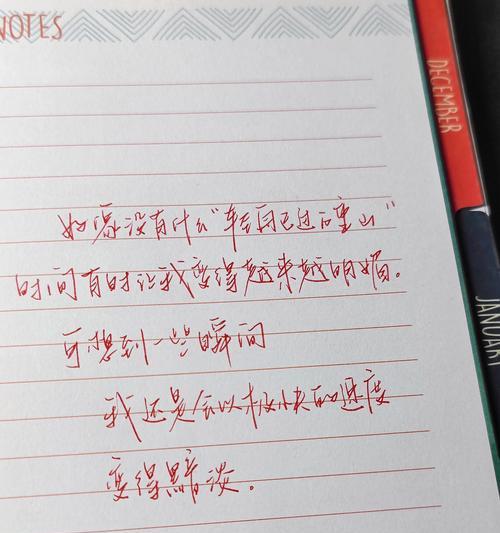 NOTES
DECEMBER
JANUARY
好像没有什么“轻舟已过万重山”
时间有时让我变得越来越明媚。
可想到一些瞬间
我还是会以极快的速度
变得黯淡。